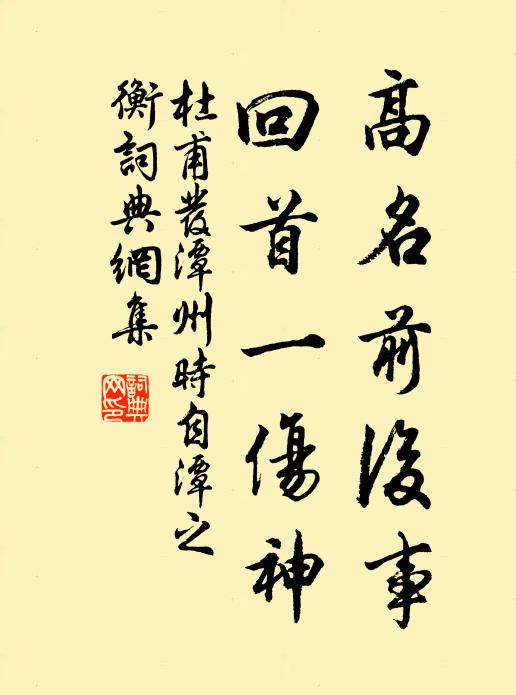 高名前後事
回首一傷神
杜甫發潭州時自潭之
衡詞典網集
詞典
网印